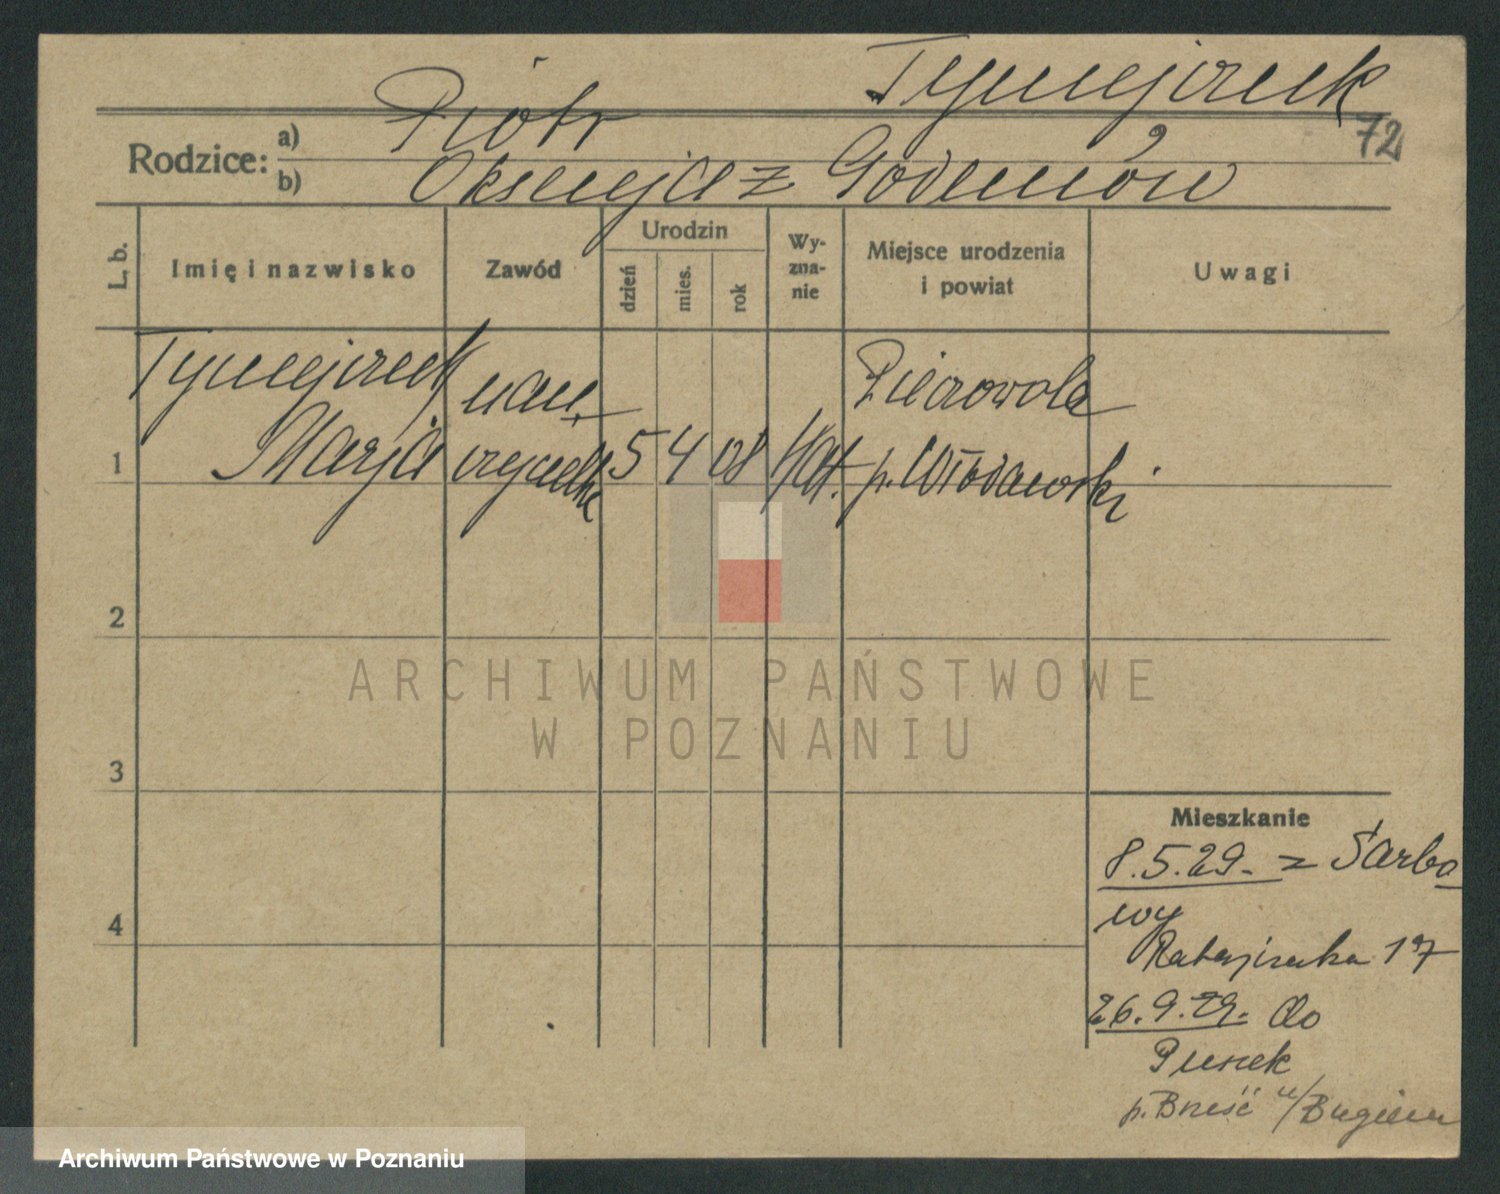 Tymejczuk
72
Rodzice: a) Piotr
b) Oksenja z Godunów
L. b.
Imię i nazwisko
Zawód
Urodzin
dzień
mies.
rok
Wy-
zna-
nie
Miejsce urodzenia
i powiat
Uwagi
1
Tymejczuk
Marja
nau-
czycielka
5 4 08
kat.
p. Włodawski
2
3
4
Mieszkanie
8.5.29. z Sarbo
wy
Ratajczaka 17
26.9.29. do
p. Brześć n/Bugiem
ARCHIWUM PAŃSTWOWE
W POZNANIU
Archiwum Państwowe w Poznaniu